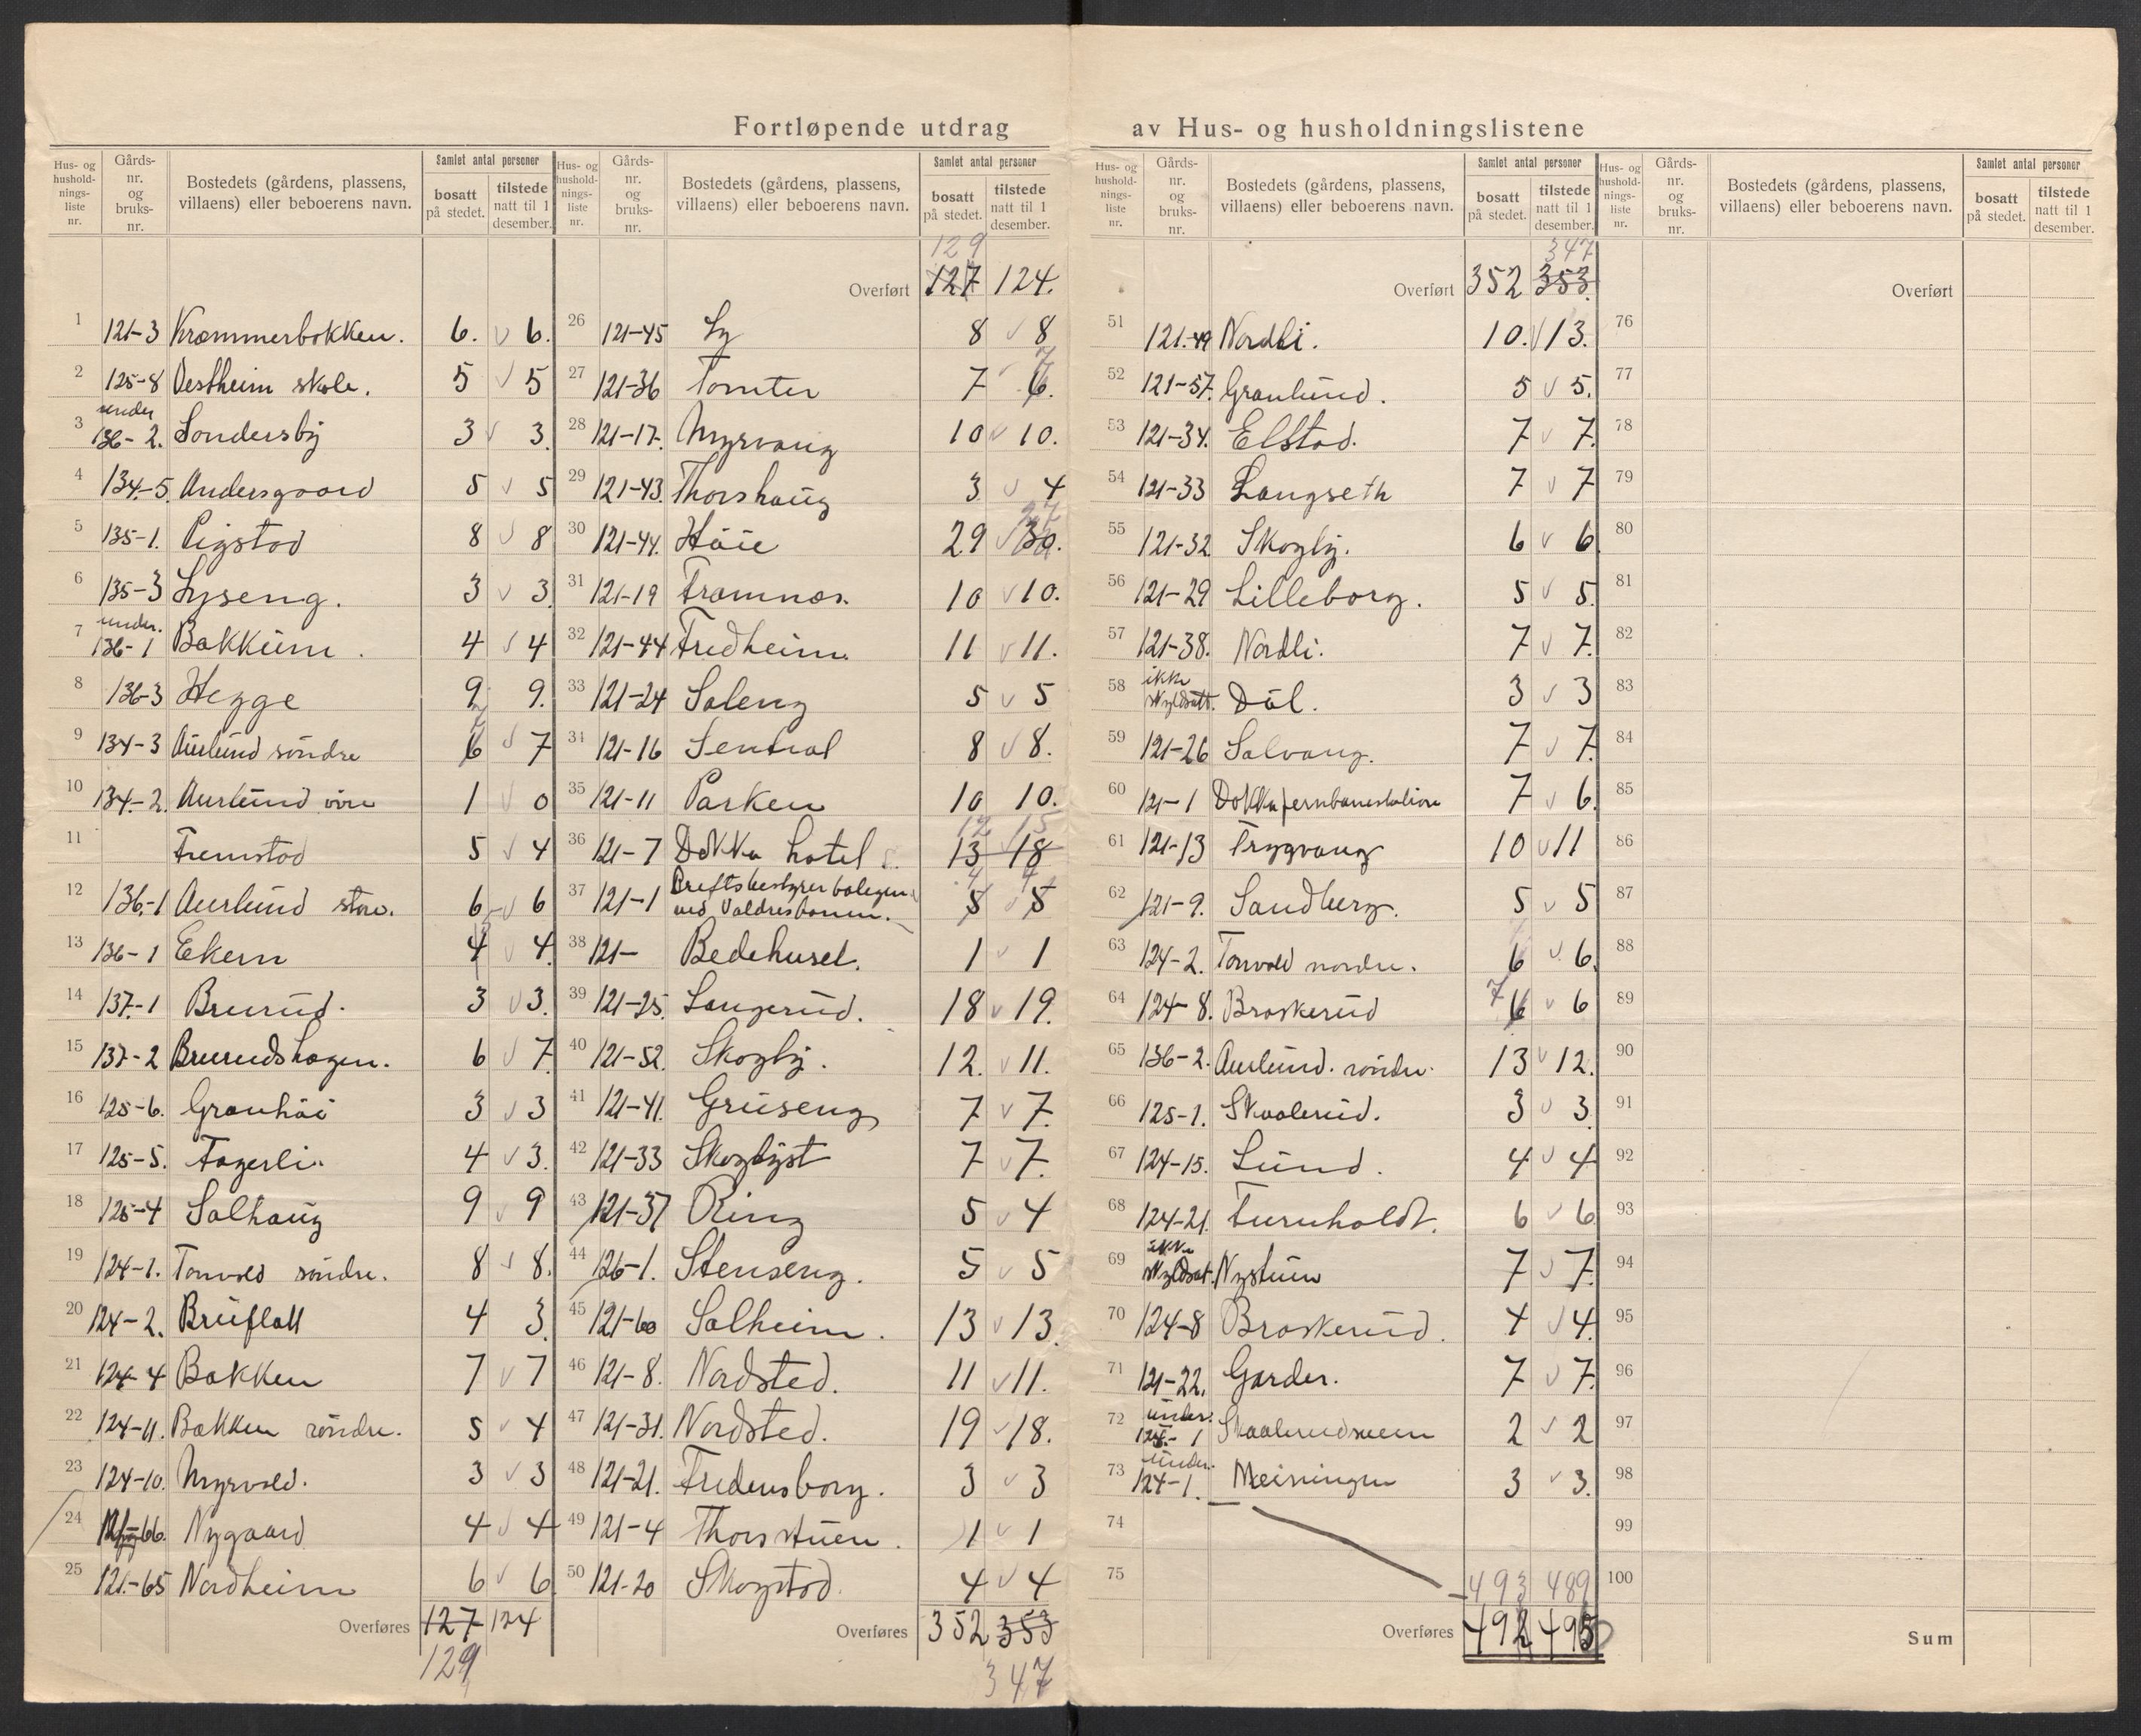 Fortløpende utdrag av Hus- og husholdningslistene
Hus- og husholdningsliste nr. | Gårds-nr. og bruks-nr. | Bostedets (gårdens, plassens, villaens) eller beboerens navn. | Samlet antal personer | bosatt på stedet. | tilstede natt til 1 desember.
1 121-3 Kræmmerbakken. 6. v 6.
2 125-8 Vestheim skole. 5 v 5
3 under 136-2. Sondersby 3 v 3.
4 134-5. Andersgaard 5 v 5
5 135-1. Rigstad 8 v 8
6 135-3 Lyseng. 3 v 3.
7 under. 136-1 Bakkum. 4 v 4
8 136-3 Hegge 9 9.
9 134-3 Aurlund söndre 6 7 v 7
10 134-2. Aurlund övre 1 v 0
11 Fremstad 5 v 4
12 136-1 Aurlund store. 6 v 6
13 136-1 Ekern 4 v 4.
14 137-1 Brurud. 3 v 3.
15 137-2 Brurudshagen. 6 v 7.
16 125-6. Granhöi 3 v 3
17 125-5. Fagerli. 4 v 3.
18 125-4 Solhaug 9 v 9
19 124-1. Tonvold söndre. 8 v 8.
20 124-2. Bruflatt 4 3.
21 124-4 Bakken 7 v 7
22 124-11. Bakken söndre. 5 v 4
23 124-10. Myrvold. 3 v 3
24 121-66. Nygaard 4 v 4
25 121-65 Nordheim 6 v 6
Overføres 127 124
129
129
Overført 127 124.
26 121-45 Ly 8 v 8
27 121-36 Tomter 7 6. 7
28 121-17. Myrvang 10 v 10.
29 121-43. Thorshaug 3 v 4
30 121-44. Höie 29 v 30. 27
31 121-19 Framnæs. 10 v 10.
32 121-44 Fredheim. 11 v 11.
33 121-24 Soleng 5 v 5
34 121-16 Sentral 8 v 8.
35 121-11 Parken 10 10.
36 121-7 Dokka hotel 13 18 12 15
37 121-1 Driftsbestyrerboligen ved Valdresbanen. 5 v 5 4 4
38 121- Bedehuset. 1 v 1
39 121-25. Langerud. 18 v 19.
40 121-52. Skogby. 12. v 11.
41 121-41. Gruseng 7 v 7.
42 121-33 Skoglyst 7 v 7.
43 121-37 Ring 5 v 4
44 126-1. Stenseng. 5 v 5
45 121-60 Solheim. 13 v 13.
46 121-8. Nordsted. 11 v 11.
47 121-31. Nordsted. 19 v 18.
48 121-21. Fredensborg. 3 v 3
49 121-4 Thorstuen. 1 v 1
50 121-20 Skogstad. 4 v 4
Overføres 352 353
347
347
Overført 352 353.
51 121-49 Nordli. 10. v 13.
52 121-57. Granlund. 5 v 5.
53 121-34. Elstad. 7 v 7.
54 121-33 Langseth 7 v 7
55 121-32 Skogly. 6 v 6.
56 121-29 Lilleborg. 5 v 5.
57 121-38. Nordli. 7 v 7.
58 ikke skyldsatt. Döl. 3 v 3
59 121-26 Solvang. 7 v 7.
60 121-1 Dokka jernbanestation 7 v 6.
61 121-13 Trygvang 10 v 11
62 121-9. Sandberg. 5 v 5
63 124-2. Tonvold nordre. 6 v 6.
64 124-8. Braskerud 7 6 v 6
65 136-2. Aurlund. söndre. 13 v 12.
66 125-1. Skaalerud. 3 v 3.
67 124-15. Lund. 4 v 4
68 124-21. Furuholdt. 6 v 6
69 ikke skyldsat. Nystuen 7 v 7.
70 124-8 Braskerud. 4 v 4.
71 121-22. Garder. 7 v 7.
72 under. 125-1 2 v 2
73 under. 124-1. Meiningen 3 v 3.
74
75 493 489
Overføres 492 495
Overført
76
77
78
79
80
81
82
83
84
85
86
87
88
89
90
91
92
93
94
95
96
97
98
99
100
Sum